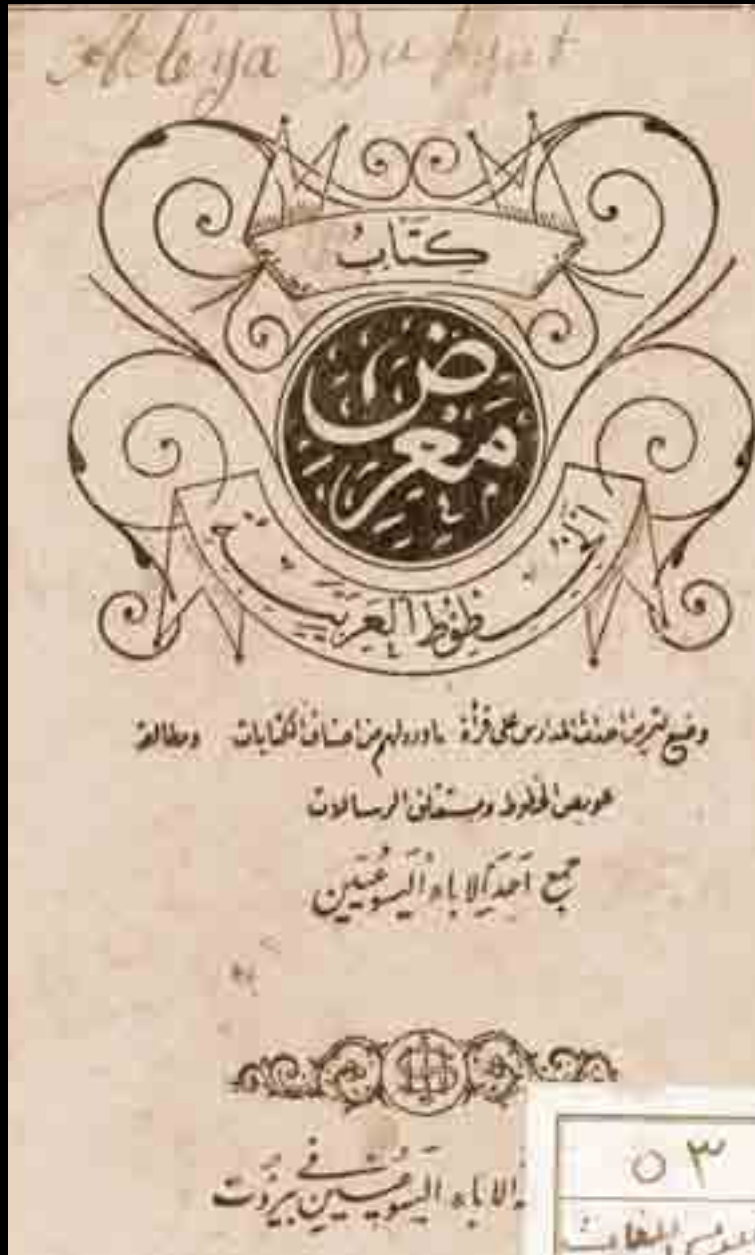 كِتَابُ
مَعْرِض
الخُطُوطِ العَرَبِيَّة
وضع لتمرين احداث المدارس على قرأة ما ورد لهم من اصناف الكتابات ومطالعة
عويص الخطوط ومستغلق الرسالات
جمع احد الاباء اليسوعيين
الاباء اليسوعيين في بيروت
٥٣